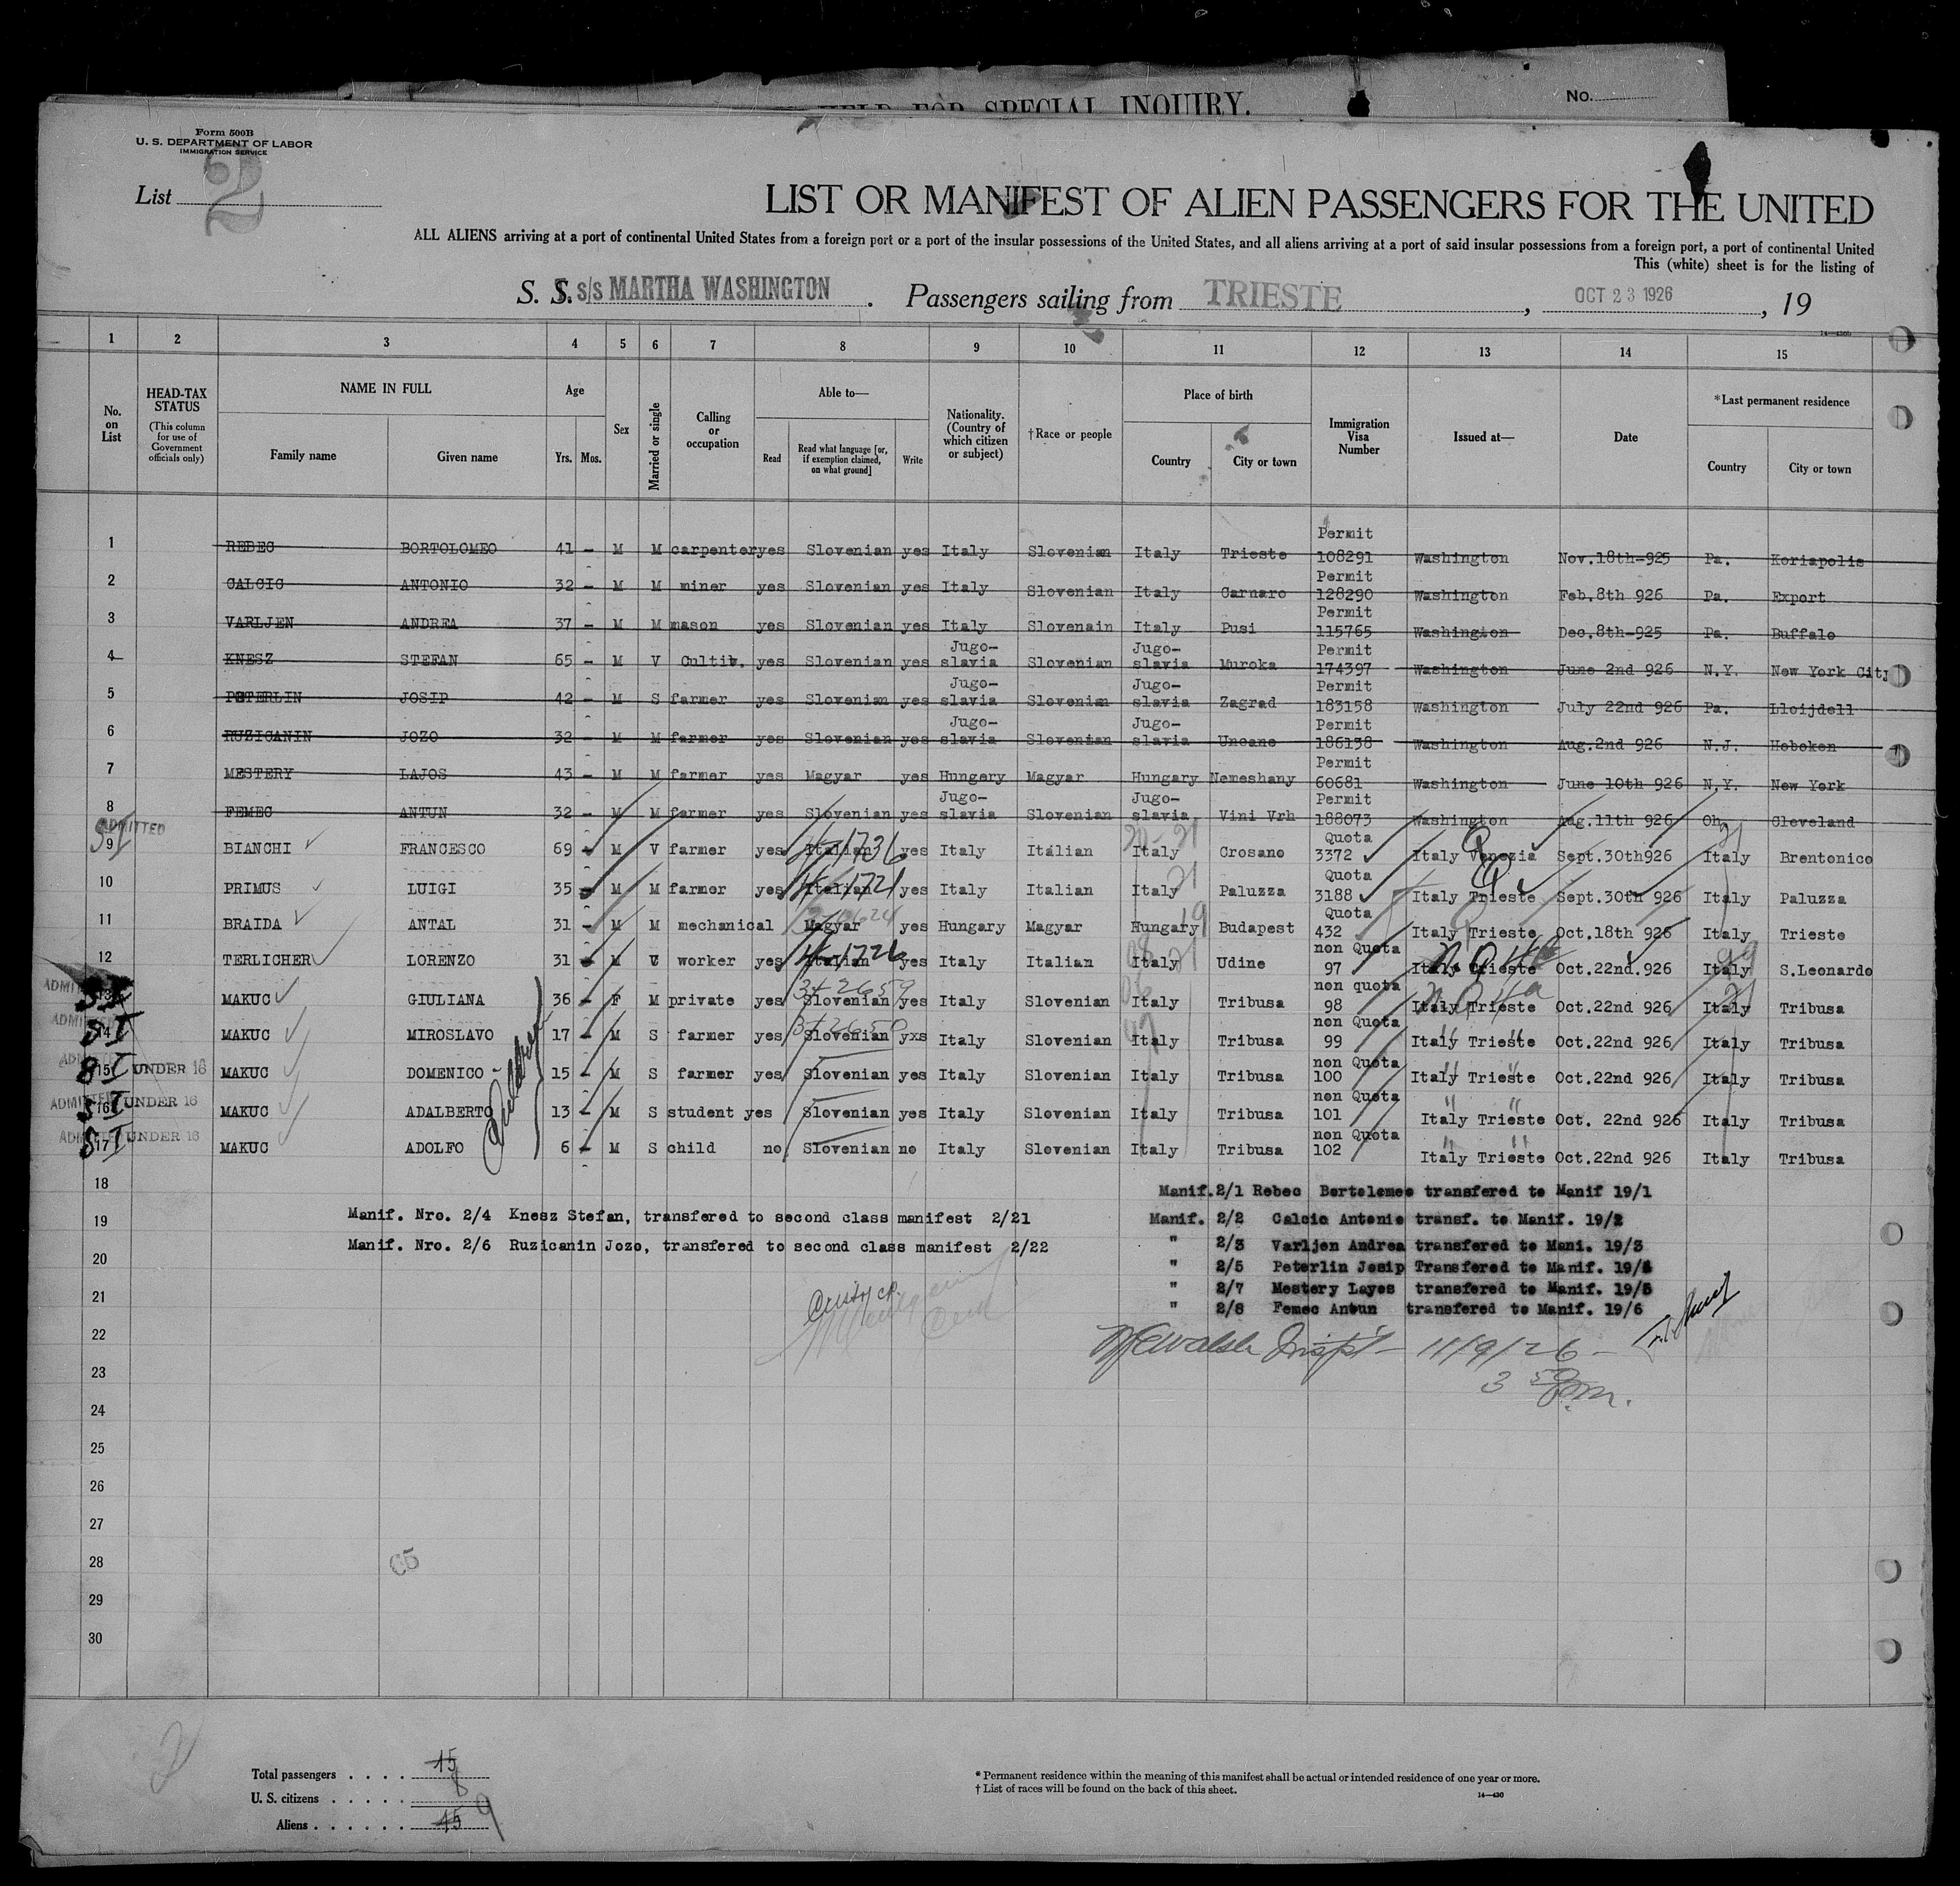 HELD FOR SPECIAL INQUIRY.
No.
Form 500B
U. S. DEPARTMENT OF LABOR
IMMIGRATION SERVICE
List 2
LIST OR MANIFEST OF ALIEN PASSENGERS FOR THE UNITED
ALL ALIENS arriving at a port of continental United States from a foreign port or a port of the insular possessions of the United States, and all aliens arriving at a port of said insular possessions from a foreign port, a port of continental United
This (white) sheet is for the listing of
S. S. s/s MARTHA WASHINGTON . Passengers sailing from TRIESTE , OCT 23 1926 , 19
14—430b
1 2 3 4 5 6 7 8 9 10 11 12 13 14 15
No. on List
HEAD-TAX STATUS (This column for use of Government officials only)
NAME IN FULL
Family name Given name
Age
Yrs. Mos.
Sex
Married or single
Calling or occupation
Able to—
Read Read what language [or, if exemption claimed, on what ground] Write
Nationality. (Country of which citizen or subject)
†Race or people
Place of birth
Country City or town
Immigration Visa Number
Issued at—
Date
*Last permanent residence
Country City or town
1 REBEC BORTOLOMEO 41 – M M carpenter yes Slovenian yes Italy Slovenian Italy Trieste Permit 108291 Washington Nov.18th-925 Pa. Koriapolis
2 CALCIC ANTONIO 32 – M M miner yes Slovenian yes Italy Slovenian Italy Carnaro Permit 128290 Washington Feb.8th 926 Pa. Export
3 VARLJEN ANDREA 37 – M M mason yes Slovenian yes Italy Slovenain Italy Pusi Permit 115765 Washington Dec.8th-925 Pa. Buffalo
4 KNESZ STEFAN 65 – M V Cultiv. yes Slovenian yes Jugo-slavia Slovenian Jugo-slavia Muroka Permit 174397 Washington June 2nd 926 N.Y. New York City
5 PETERLIN JOSIP 42 – M S farmer yes Slovenian yes Jugo-slavia Slovenian Jugo-slavia Zagrad Permit 183158 Washington July 22nd 926 Pa. Lloijdell
6 RUZICANIN JOZO 32 – M M farmer yes Slovenian yes Jugo-slavia Slovenian Jugo-slavia Uncane Permit 186138 Washington Aug.2nd 926 N.J. Hoboken
7 MESTERY LAJOS 43 – M M farmer yes Magyar yes Hungery Magyar Hungary Nemeshany Permit 60681 Washington June 10th 926 N.Y. New York
8 FEMEC ANTUN 32 – M M farmer yes Slovenian yes Jugo-slavia Slovenian Jugo-slavia Vini Vrh Permit 188073 Washington Aug.11th 926 Oh. Cleveland
ADMITTED SI
9 BIANCHI FRANCESCO 69 – M V farmer yes Italian yes Italy Italian Italy Crosano Quota 3372 Italy Venezia Sept.30th926 Italy Brentonico
10 PRIMUS LUIGI 35 – M M farmer yes Italian yes Italy Italian Italy Paluzza Quota 3188 Italy Trieste Sept.30th 926 Italy Paluzza
11 BRAIDA ANTAL 31 – M M mechanical Magyar yes Hungary Magyar Hungary Budapest Quota 432 Italy Trieste Oct.18th 926 Italy Trieste
12 TERLICHER LORENZO 31 – M worker yes Italian yes Italy Italian Italy Udine non Quota 97 Italy Trieste Oct.22nd.926 Italy S.Leonardo
13 MAKUC GIULIANA 36 – F M private yes Slovenian yes Italy Slovenian Italy Tribusa non quota 98 Italy Trieste Oct.22nd 926 Italy Tribusa
14 MAKUC MIROSLAVO 17 – M S farmer yes Slovenian yxs Italy Slovenian Italy Tribusa non Quota 99 Italy Trieste Oct.22nd 926 Italy Tribusa
15 UNDER 16 MAKUC DOMENICO 15 – M S farmer yes Slovenian yes Italy Slovenian Italy Tribusa non Quota 100 Italy Trieste Oct.22nd 926 Italy Tribusa
16 UNDER 16 MAKUC ADALBERTO 13 – M S student yes Slovenian yes Italy Slovenian Italy Tribusa non Quota 101 Italy Trieste Oct. 22nd 926 Italy Tribusa
17 UNDER 16 MAKUC ADOLFO 6 – M S child no Slovenian no Italy Slovenian Italy Tribusa non Quota 102 Italy Trieste Oct.22nd 926 Italy Tribusa
Children
18 Manif.2/1 Rebec Bortolomeo transfered to Manif 19/1
19 Manif. Nro. 2/4 Knesz Stefan, transfered to second class manifest 2/21
Manif. 2/2 Calcic Antonio transf. to Manif. 19/2
Manif. Nro. 2/6 Ruzicanin Jozo, transfered to second class manifest 2/22
" 2/3 Varljen Andrea transfered to Mani. 19/3
20 " 2/5 Peterlin Josip Transfered to Manif. 19/4
21 " 2/7 Mestery Layos transfered to Manif. 19/5
" 2/8 Femec Antun transfered to Manif. 19/6
22 Walsh Inspt – 11/9/26 –
23 3 50 P.m.
24
25
26
27
28
29
30
2
Total passengers . . . . 15 8
U. S. citizens . . . . .
Aliens . . . . . . 15 9
* Permanent residence within the meaning of this manifest shall be actual or intended residence of one year or more.
† List of races will be found on the back of this sheet.
14—430